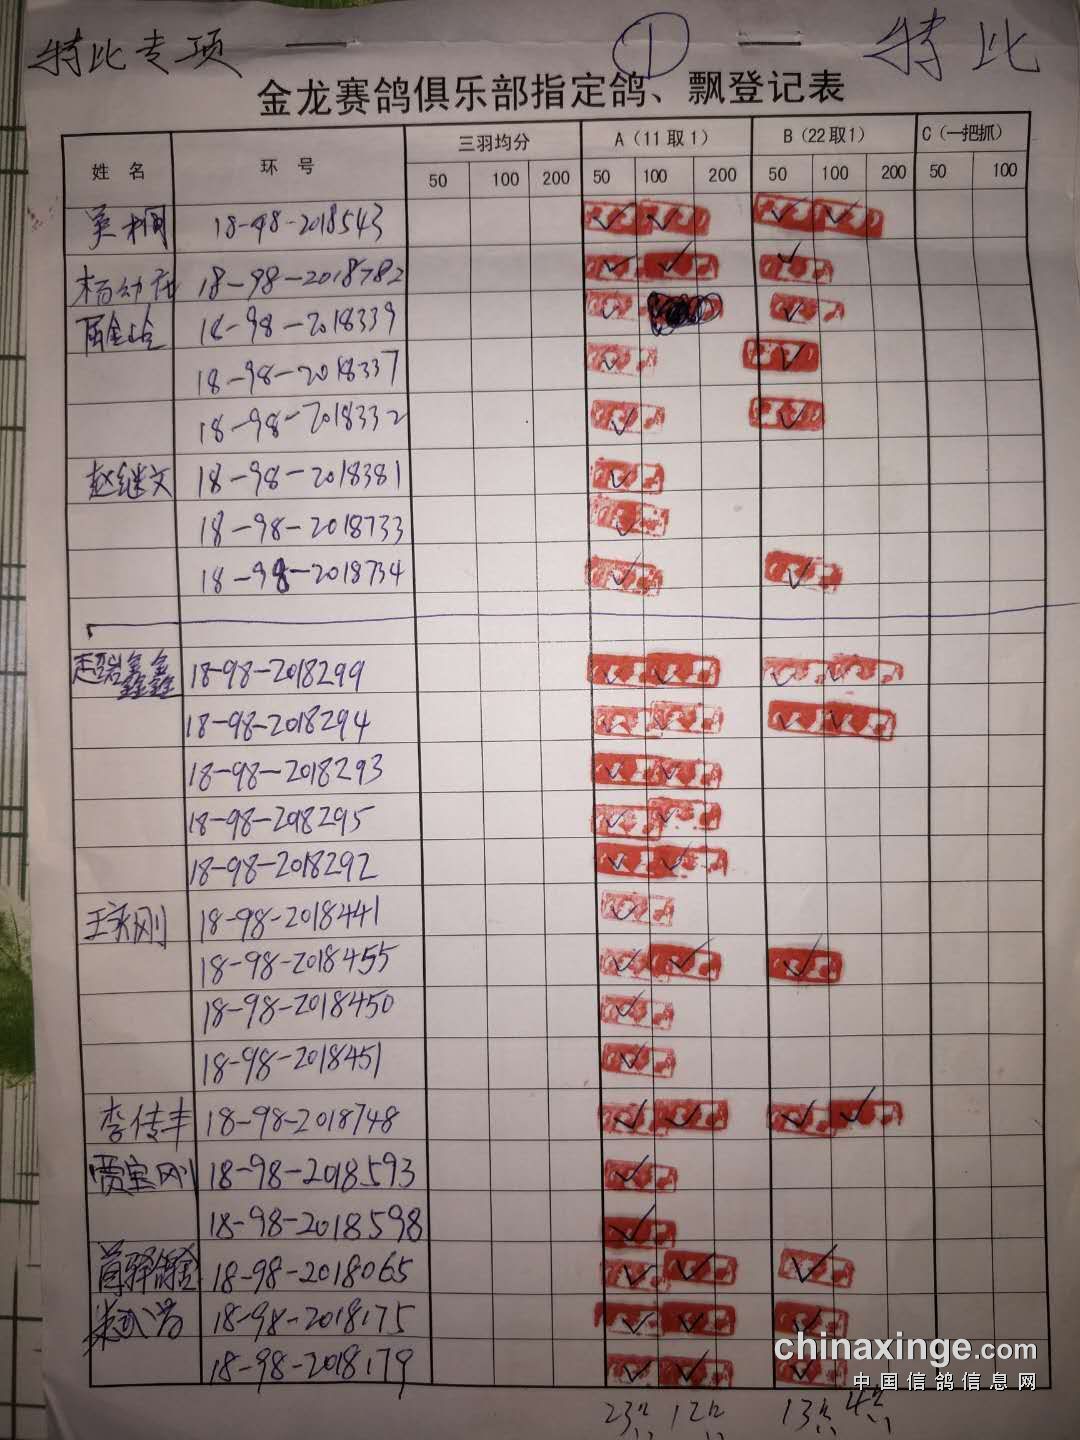 特比专项 ① 特比
金龙赛鸽俱乐部指定鸽、飘登记表
姓 名 环 号 三羽均分 A（11取1） B（22取1） C（一把抓）
50 100 200 50 100 200 50 100 200 50 100
吴桐 18-98-2018543 ✓ ✓ ✓ ✓
18-98-2018782 ✓ ✓ ✓
18-98-2018339 ✓ ✓
18-98-2018337 ✓ ✓
18-98-2018332 ✓ ✓
赵继文 18-98-2018381 ✓
18-98-2018733 ✓
18-98-2018734 ✓ ✓
18-98-2018299 ✓ ✓ ✓ ✓
18-98-2018294 ✓ ✓ ✓ ✓
18-98-2018293 ✓ ✓
18-98-2018295 ✓ ✓
18-98-2018292 ✓ ✓
王永刚 18-98-2018441 ✓
18-98-2018455 ✓ ✓ ✓
18-98-2018450 ✓
18-98-2018451 ✓
李传丰 18-98-2018748 ✓ ✓ ✓ ✓
贾宝刚 18-98-2018593 ✓
18-98-2018598 ✓
18-98-2018065 ✓ ✓ ✓
18-98-2018175 ✓ ✓ ✓
18-98-2018179 ✓ ✓ ✓
23 12 13 4
chinaxinge.com
中国信鸽信息网